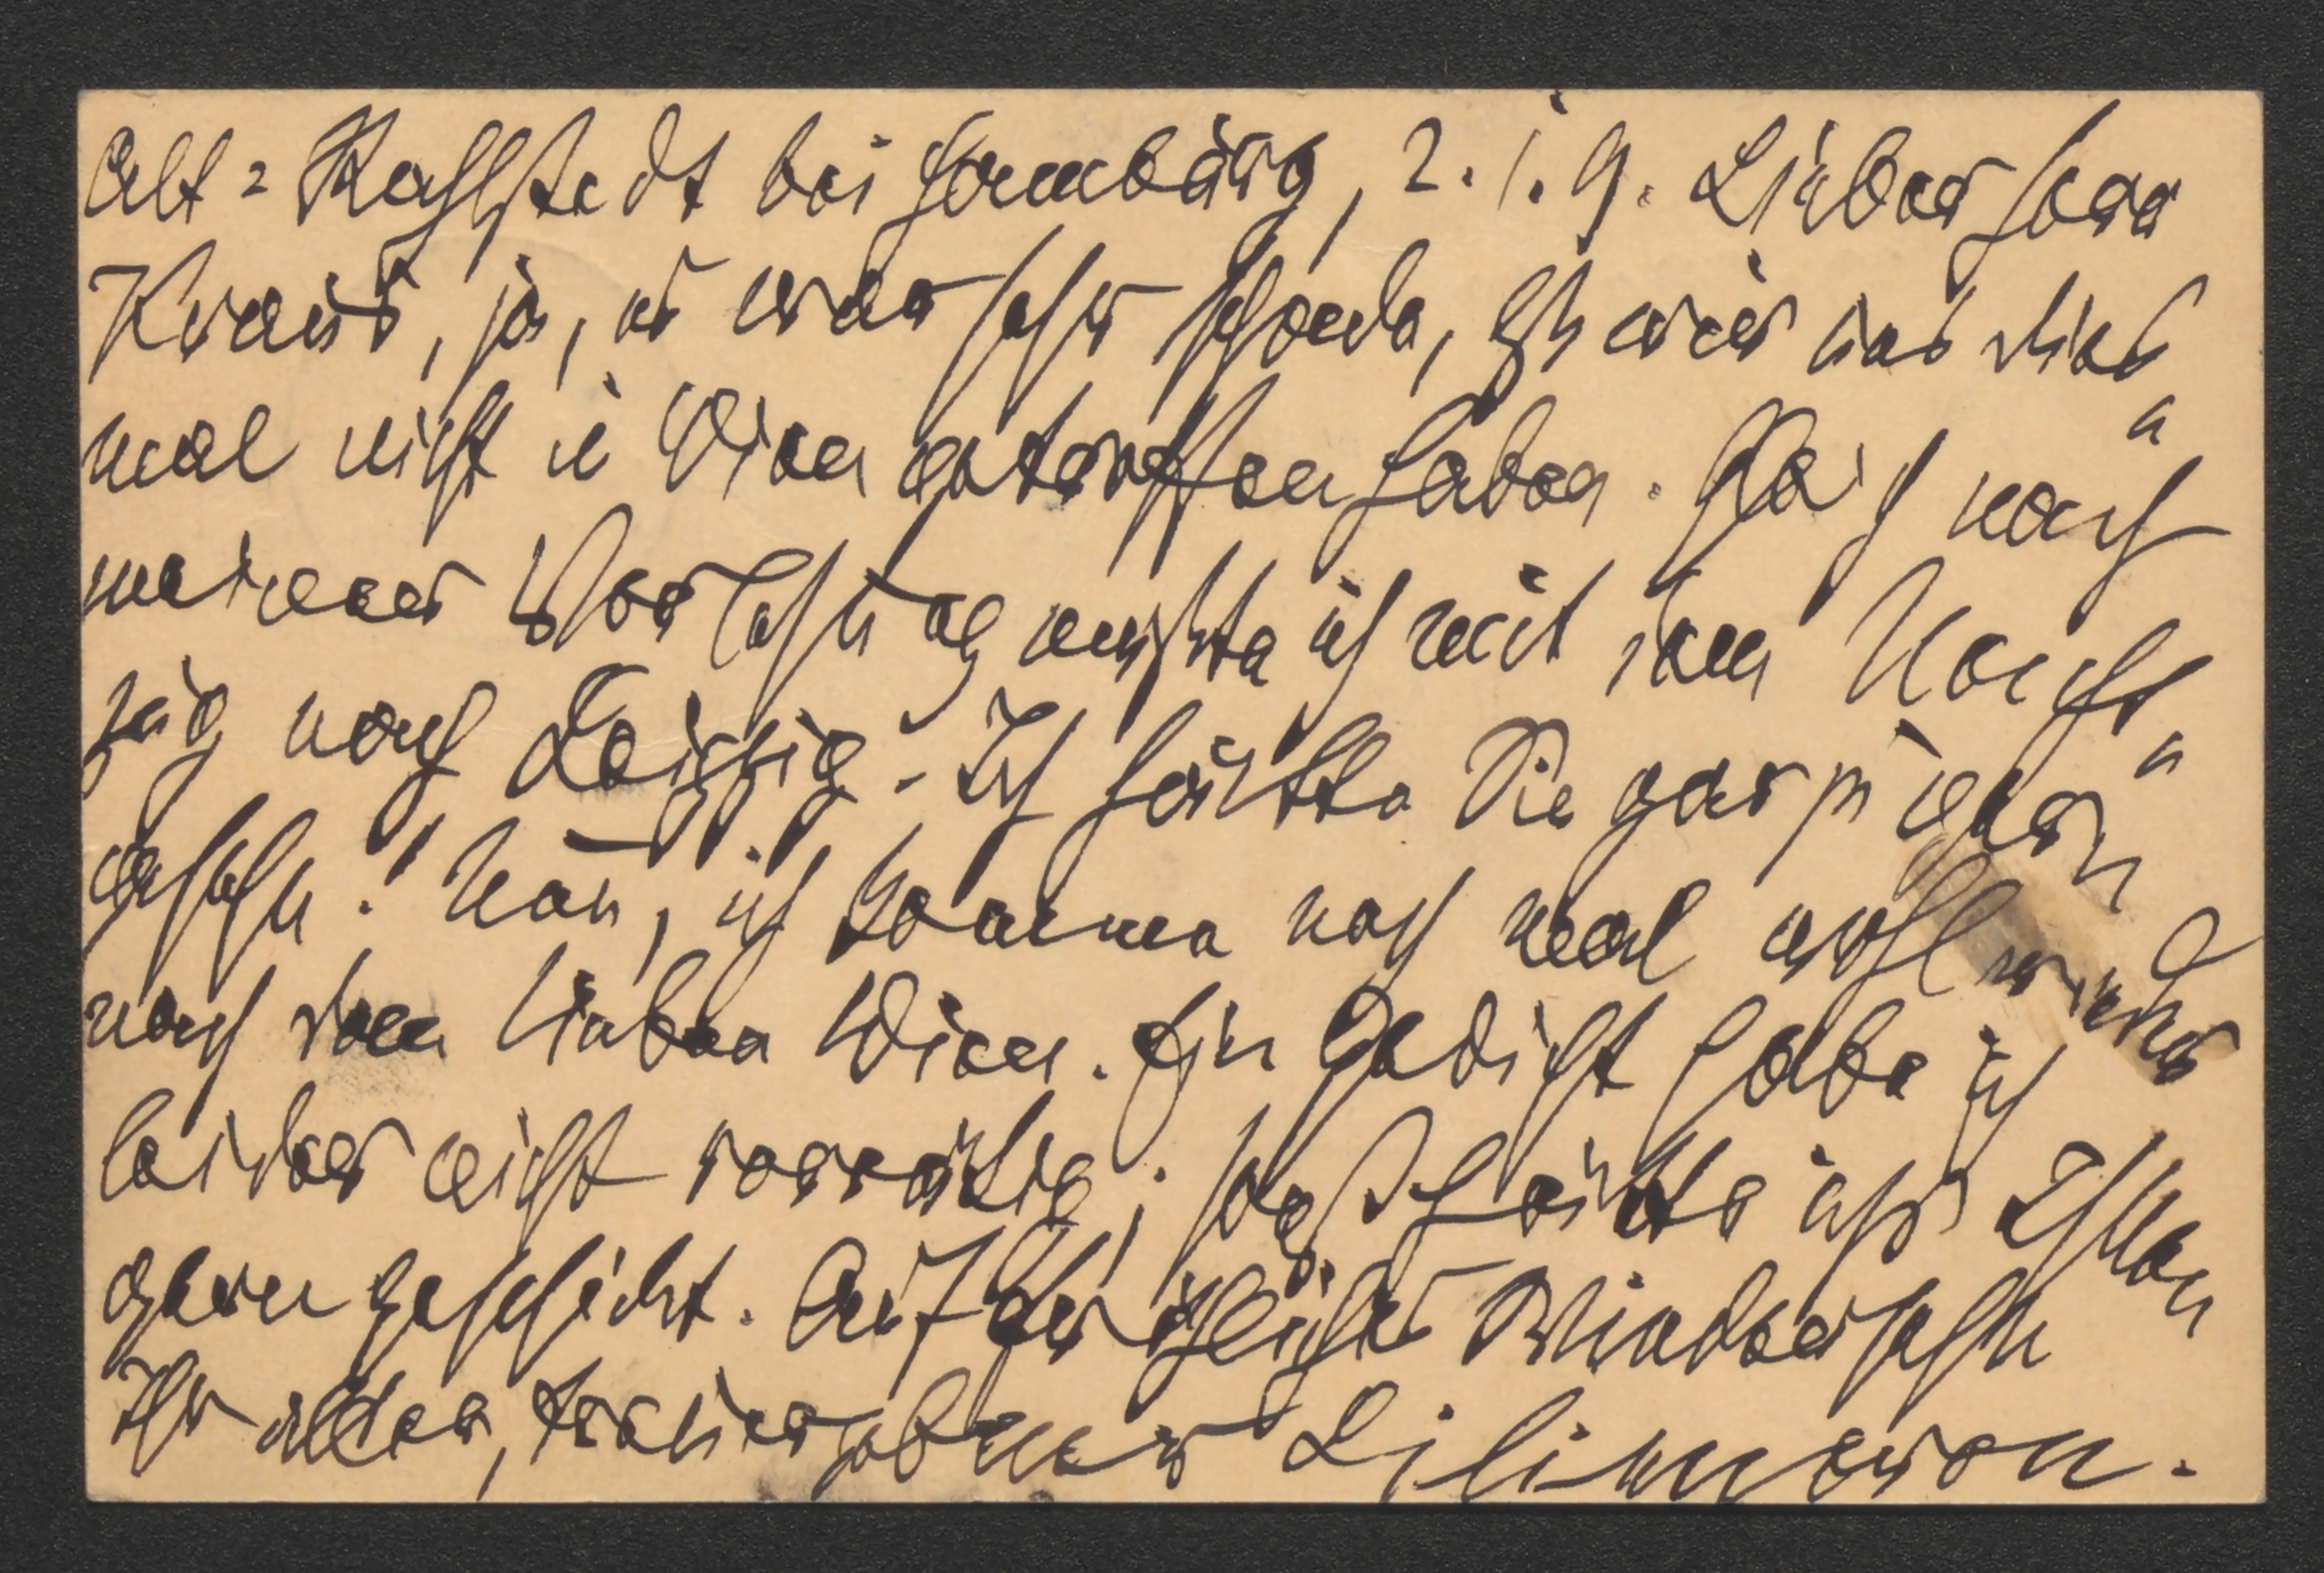 Alt=Rahlstedt bei Hamburg, 2. 1. 9. Lieber Herr
Kraus, ja, es war sehr schade, daß wir uns dies
mal nicht in Wien getroffen haben. Gleich nach
meiner Vorlesung mußte ich mit dem Nacht=
zug nach Leipzig. Ich hätte Sie gar zu gern
gesehn! Nun, ich komme noch mal wohl wieder
nach dem lieben Wien. Ein Gedicht habe ich
leider nicht vorrätig; sonst hätte ich's Ihnen
gern geschickt. Auf Wiedersehn
Ihr alter, treuergebener Liliencron.